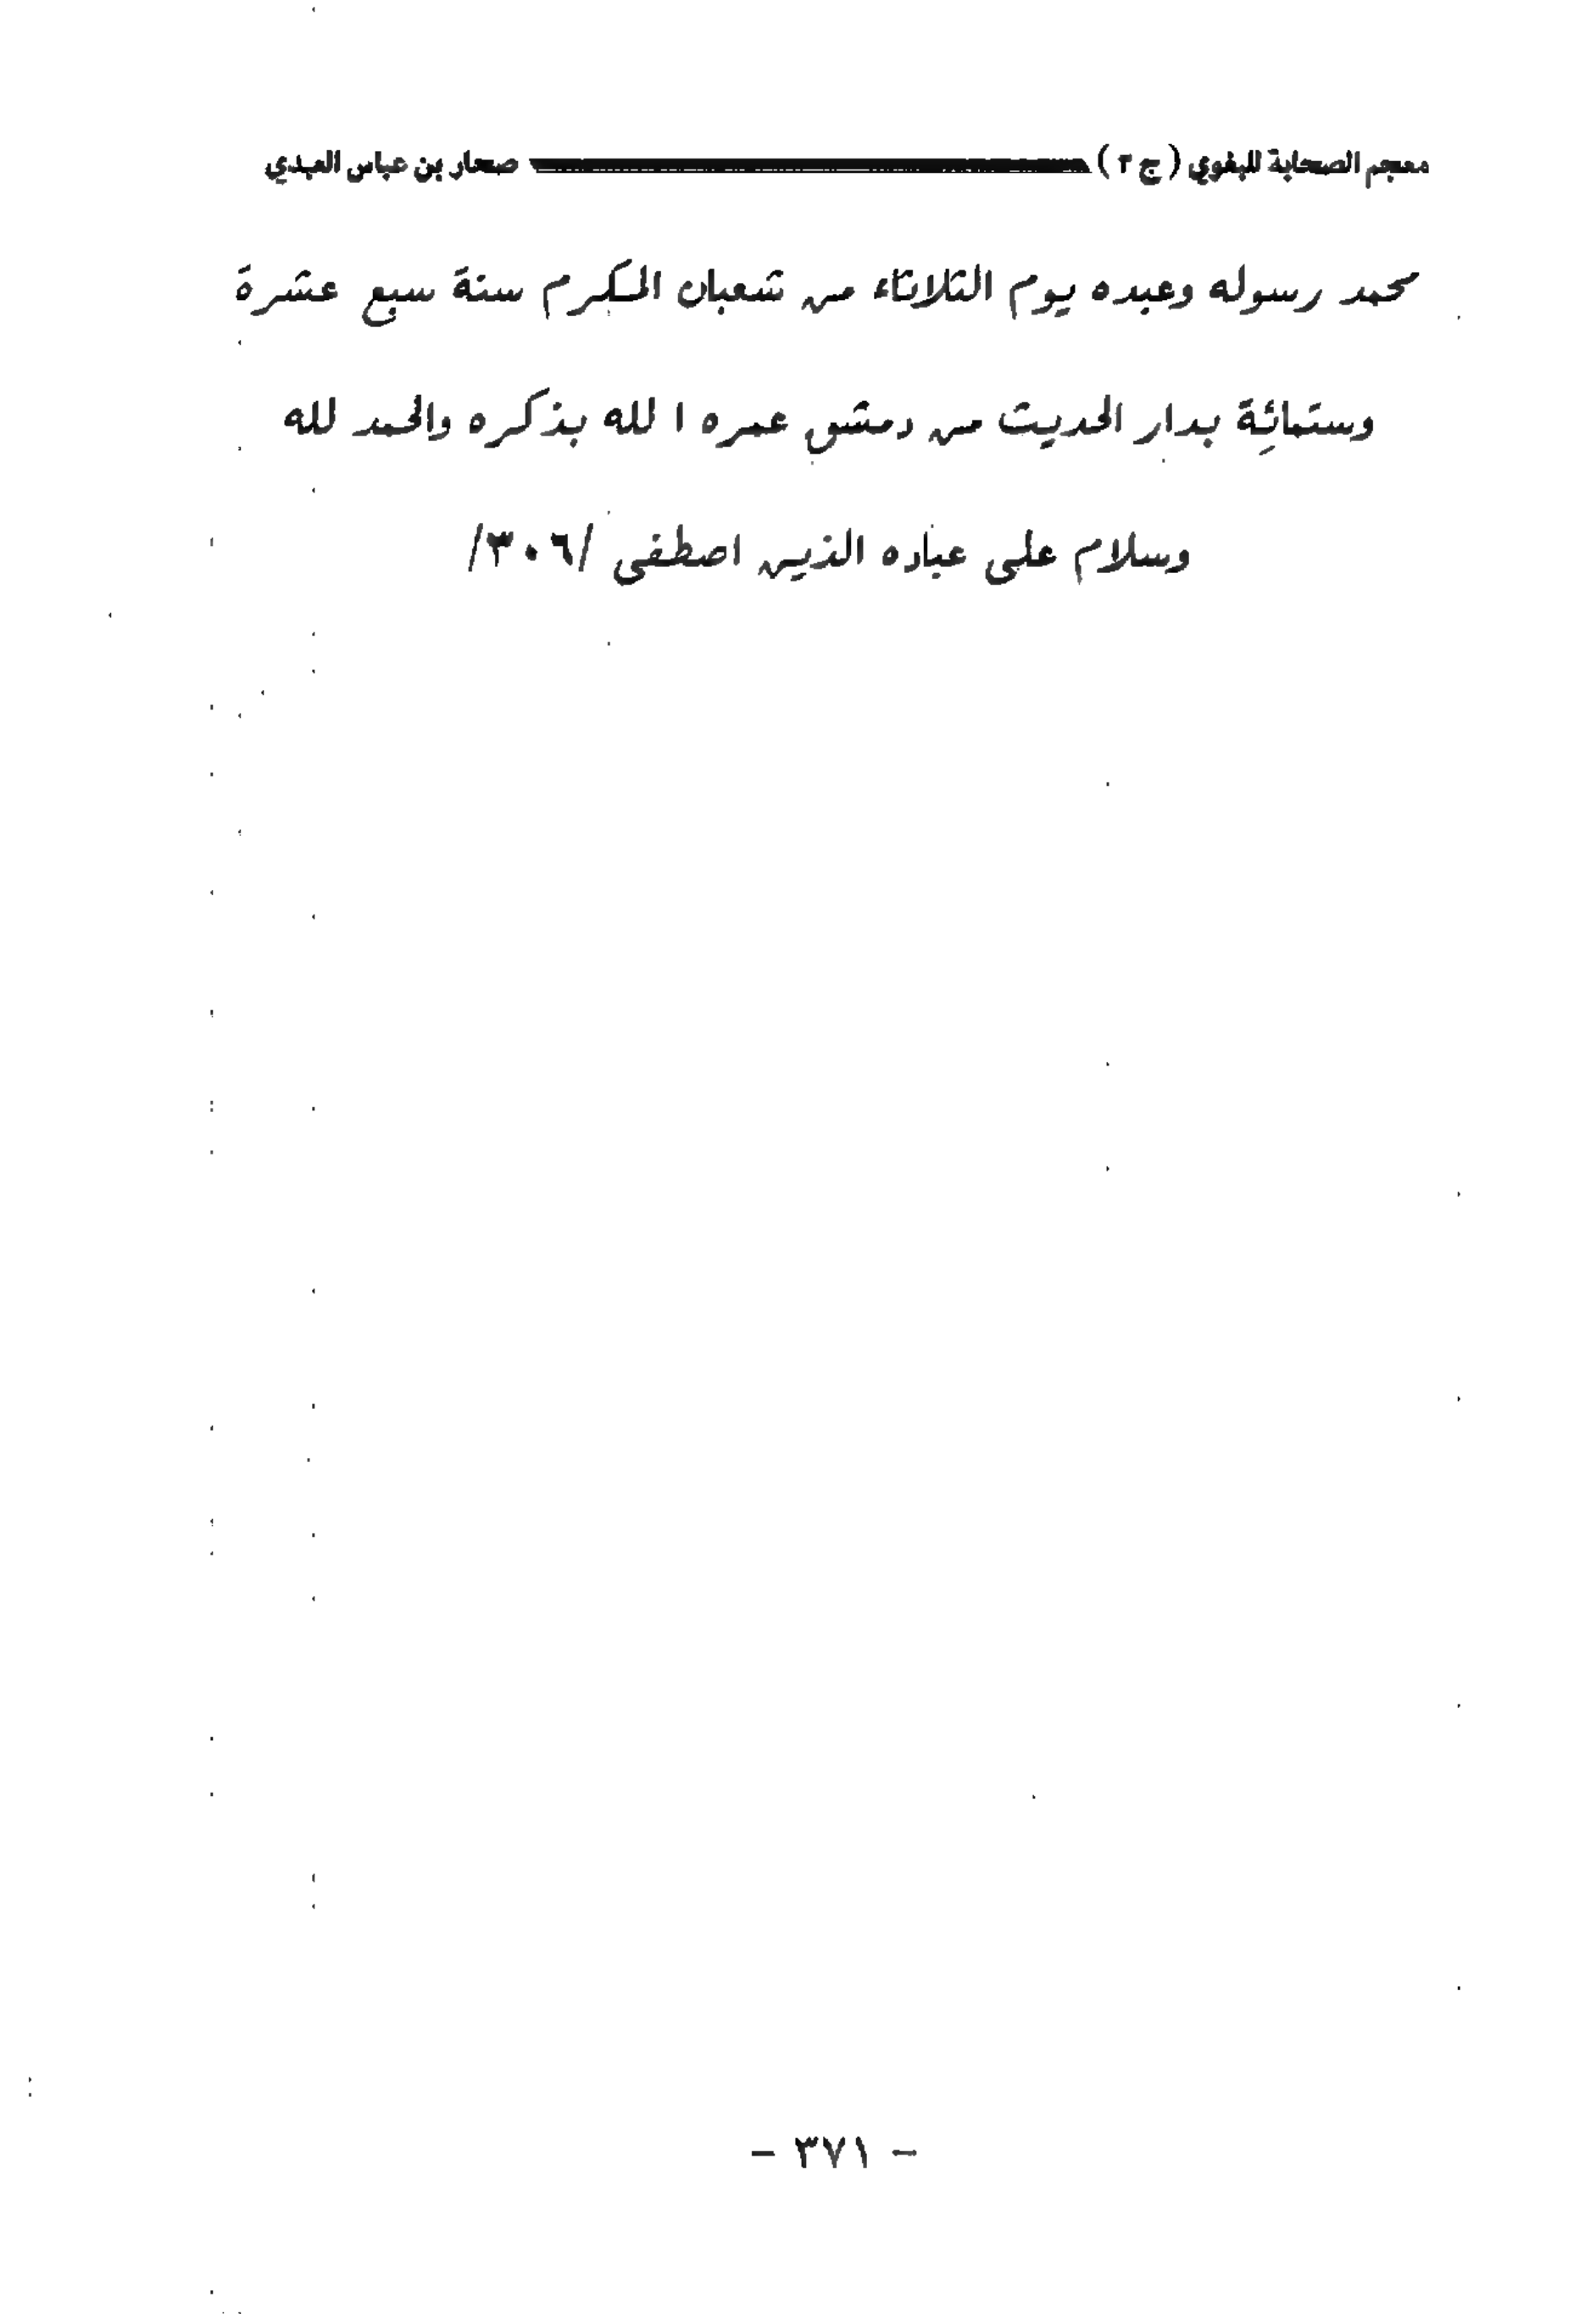 معجم الصحابة للبغوي (ج ٣) صحار بن عباس العبدي
محمد رسوله وعبده يوم الثلاثاء من شعبان المكرم سنة سبع عشرة
وستمائِة بدار الحديث من دمشق عمره ا لله بذكره والحمد لله
وسلام على عباده الذين اصطفى /٣٠٦/
– ٣٧١ –